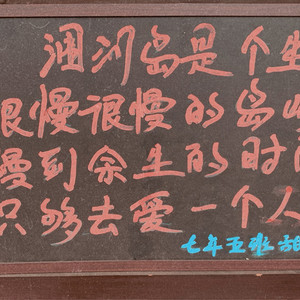 涠洲岛是个生
很慢很慢的岛屿
慢到余生的时间
只够去爱一个人
七年五班